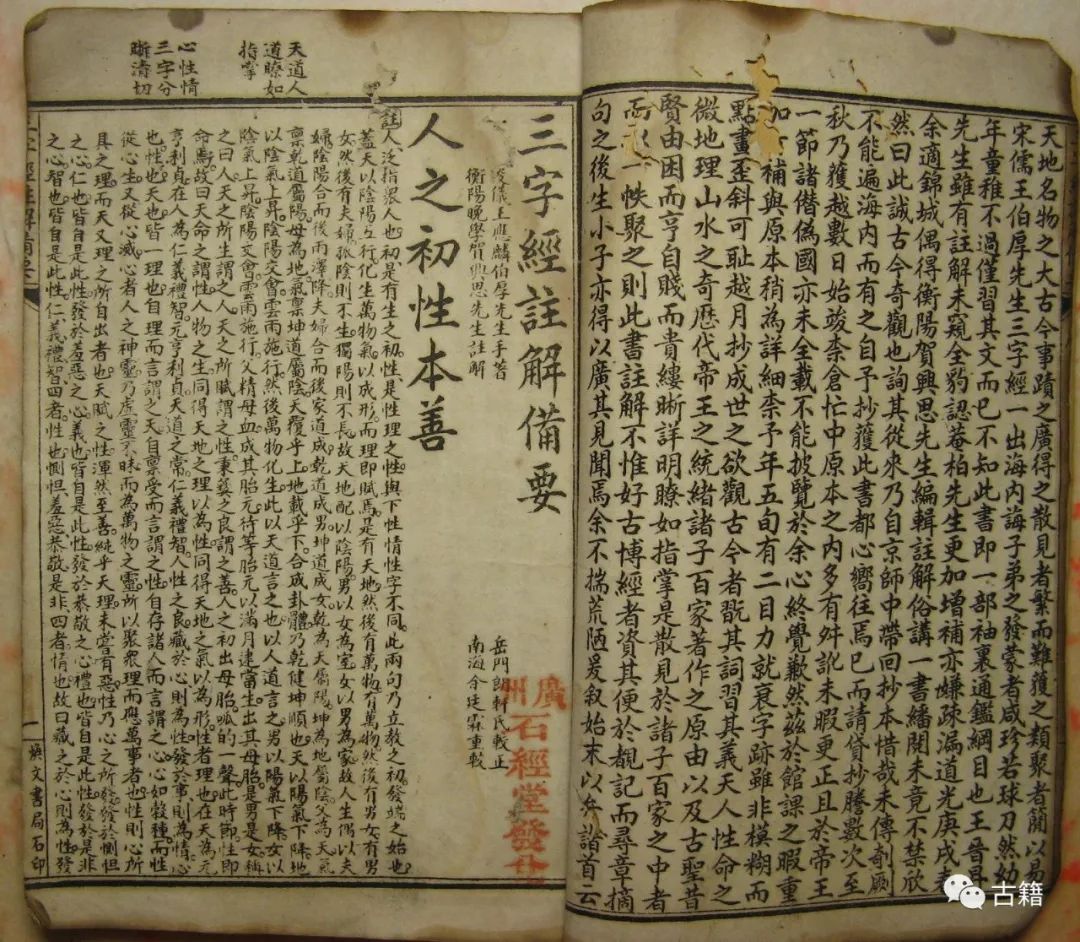 天地名物之大古今事蹟之廣得之散見者繁而難獲之類聚者簡以易
宋儒王伯厚先生三字經一出海內誨子弟之發蒙者咸珍若球刀然幼
年童稚不過僅習其文而已不知此書即一部袖裏通鑑綱目也王晉升
先生雖有註解未窺全豹認菴柏先生更加增補亦嫌疎漏道光庚戌春
余適錦城偶得衡陽賀興思先生編輯註解俗講一書繙閱未竟不禁欣
然曰此誠古今奇觀也詞其從來乃自京師中帶回抄本惜哉未傳剞劂
不能遍海內而有之自予抄獲此書都心嚮往焉已而請貸抄騰數次至
秋乃獲越數日始竣柰倉忙中原本之內多有舛訛未暇更正且於帝王
一節諸僭偽國亦未全載不能披覽於余心終覺歉然茲於館課之暇重
加 補與原本稍為詳細柰予年五旬有二目力就衰字跡雖非模糊而
點畫歪斜可恥越月抄成世之欲觀古今者翫其詞習其義天人性命之
微地理山水之奇歷代帝王之統緒諸子百家著作之原由以及古聖昔
賢由困而亨自賤而貴縷晰詳明瞭如指掌是散見於諸子百家之中者
而以一帙聚之則此書註解不惟好古博經者資其便於覩記而尋章摘
句之後生小子亦得以廣其見聞焉余不揣荒陋爰叙始末以弁諸首云
三字經註解備要
浚儀王應麟伯厚先生手著
衡陽晚學賀興思先生註解
岳門朗軒氏較正
南海余廷霖重較
廣州石經堂發
人之初性本善
天道人
道瞭如
指掌
心性情
三字分
晰清切
註人泛指衆人也初是有生之初性是性理之性與下性情性字不同此兩句乃立教之初發端之始也
蓋天以陰陽五行化生萬物氣以成形而理即賦焉是有天地然後有萬物有萬物然後有男女有男
女然後有夫婦孤陰則不生獨陽則不長故天地配以陰陽男以女為室女以男為家故人生偶以夫
婦陰陽合而後雨澤降夫婦合而後家道成乾道成男坤道成女乾為天屬陽坤為地屬陰父為天氣
稟乾道屬陽母為地氣稟坤道屬陰天覆乎上地載乎下合成卦體乃乾健坤順也天以陽氣下降地
以陰氣上昇陰陽交會雲雨施行然後萬物化生此以天道言之也以人道言之男以陽氣下降女以
陰氣上昇陰陽交會雲雨施行父精母血成其胎元待等胎元以滿月逮當生出其母胎是男是女稱
之曰人天之所生謂之人天之所賦謂之性秉彝之良謂之善人之初出母胎呱的一聲此時節性即
命焉故曰天命之謂性人物之生同得天地之理以為性同得天地之氣以為形性者理也在天為元
亨利貞在人為仁義禮智元亨利貞天道之常仁義禮智人性之良藏於心則為性發於事則為情心
也性也天也皆一理也自理而言謂之天自稟受而言謂之性自存諸人而言謂之心心如穀種而性
從心生又從心滅心者人之神靈乃虛靈不昧而為萬物之靈所以聚衆理而應萬事者也性則心所
具之理而天又理之所自出者也天賦之性渾然至善純乎天理未嘗有惡性乃心之所發發於惻怛
之心仁也皆自是此性發於羞惡之心義也皆自是此性發於恭敬之心禮也皆自是此性發於是非
之心智也皆自是此性仁義禮智四者性也惻怛羞惡恭敬是非四者情也故曰藏之於心則為性發
三字經註解備要
一
煥文書局石印
古籍